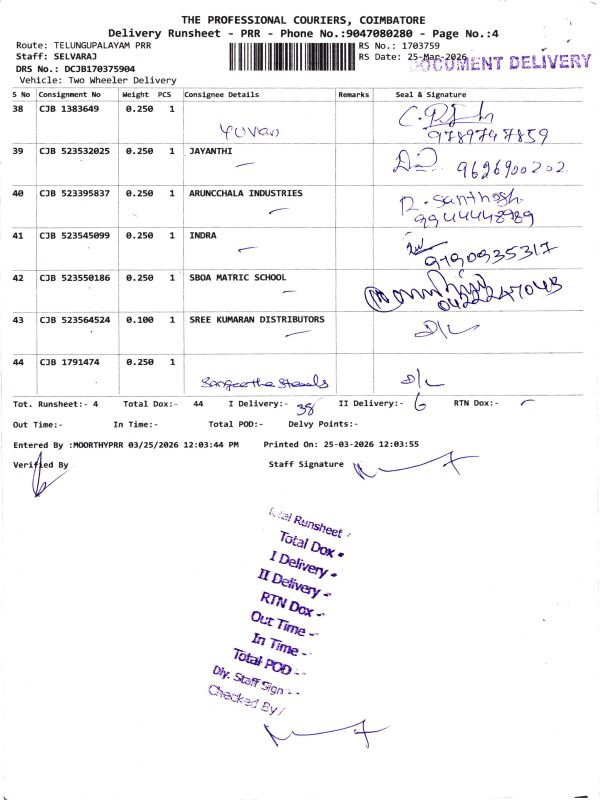 THE PROFESSIONAL COURIERS, COIMBATORE
Delivery Runsheet - PRR - Phone No.:9047080280 - Page No.:4
Route: TELUNGUPALAYAM PRR
RS No.: 1703759
Staff: SELVARAJ
RS Date: 25-Mar-2026
DOCUMENT DELIVERY
DRS No.: DCJB170375904
Vehicle: Two Wheeler Delivery
S No Consignment No Weight PCS Consignee Details Remarks Seal & Signature
38 CJB 1383649 0.250 1
Yuvan
9789747859
39 CJB 523532025 0.250 1 JAYANTHI
9626900202
40 CJB 523395837 0.250 1 ARUNCCHALA INDUSTRIES
R. Santhosh
9944448989
41 CJB 523545099 0.250 1 INDRA
9190935317
42 CJB 523550186 0.250 1 SBOA MATRIC SCHOOL
43 CJB 523564524 0.100 1 SREE KUMARAN DISTRIBUTORS
D/L
44 CJB 1791474 0.250 1
Sangeetha Steels D/L
Tot. Runsheet:- 4 Total Dox:- 44 I Delivery:- 38 II Delivery:- 6 RTN Dox:-
Out Time:- In Time:- Total POD:- Delvy Points:-
Entered By :MOORTHYPRR 03/25/2026 12:03:44 PM Printed On: 25-03-2026 12:03:55
Verified By Staff Signature
Total Runsheet -
Total Dox -
I Delivery -
II Delivery -
RTN Dox -
Out Time -
In Time -
Total POD -
Dly. Staff Sign -
Checked By /